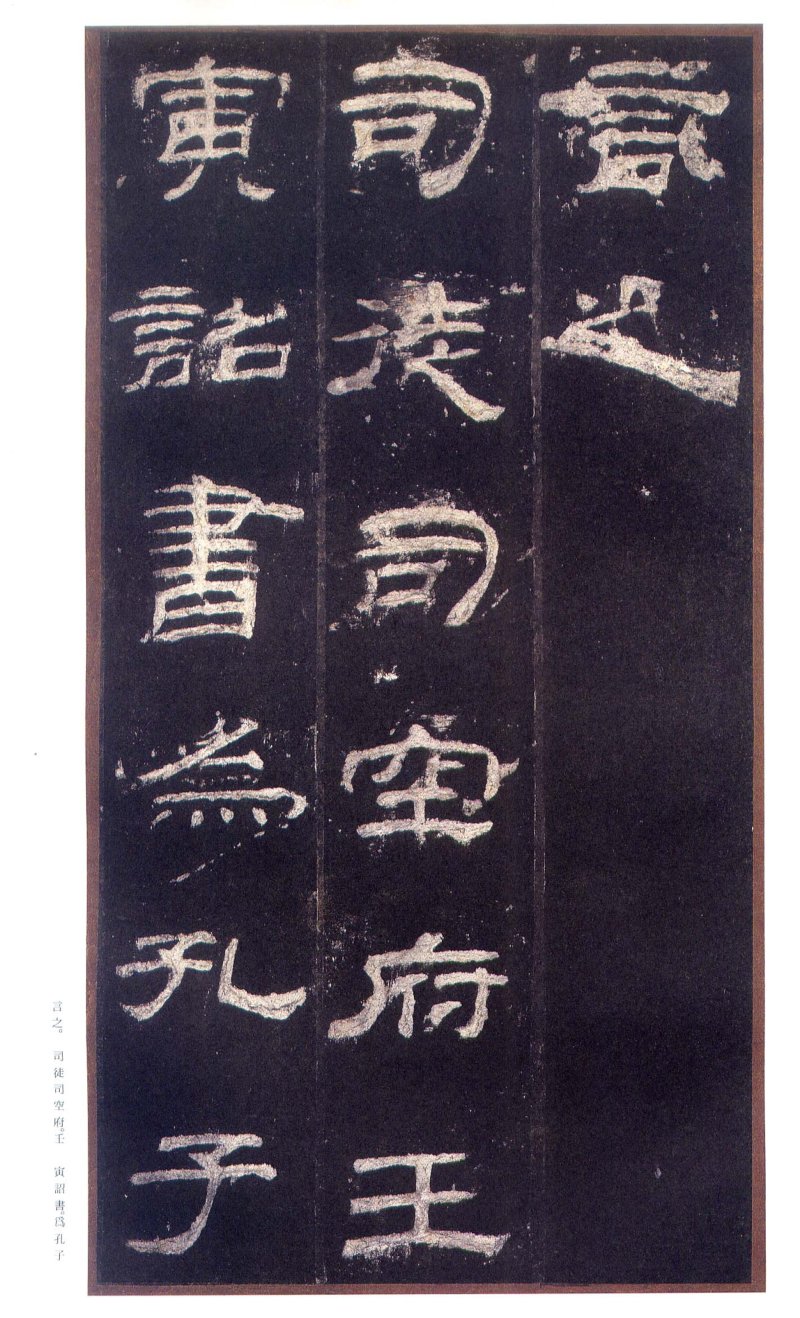 言之
司徒司空府壬
寅詔書為孔子
言之。 司徒司空府。壬 寅詔書。爲孔子